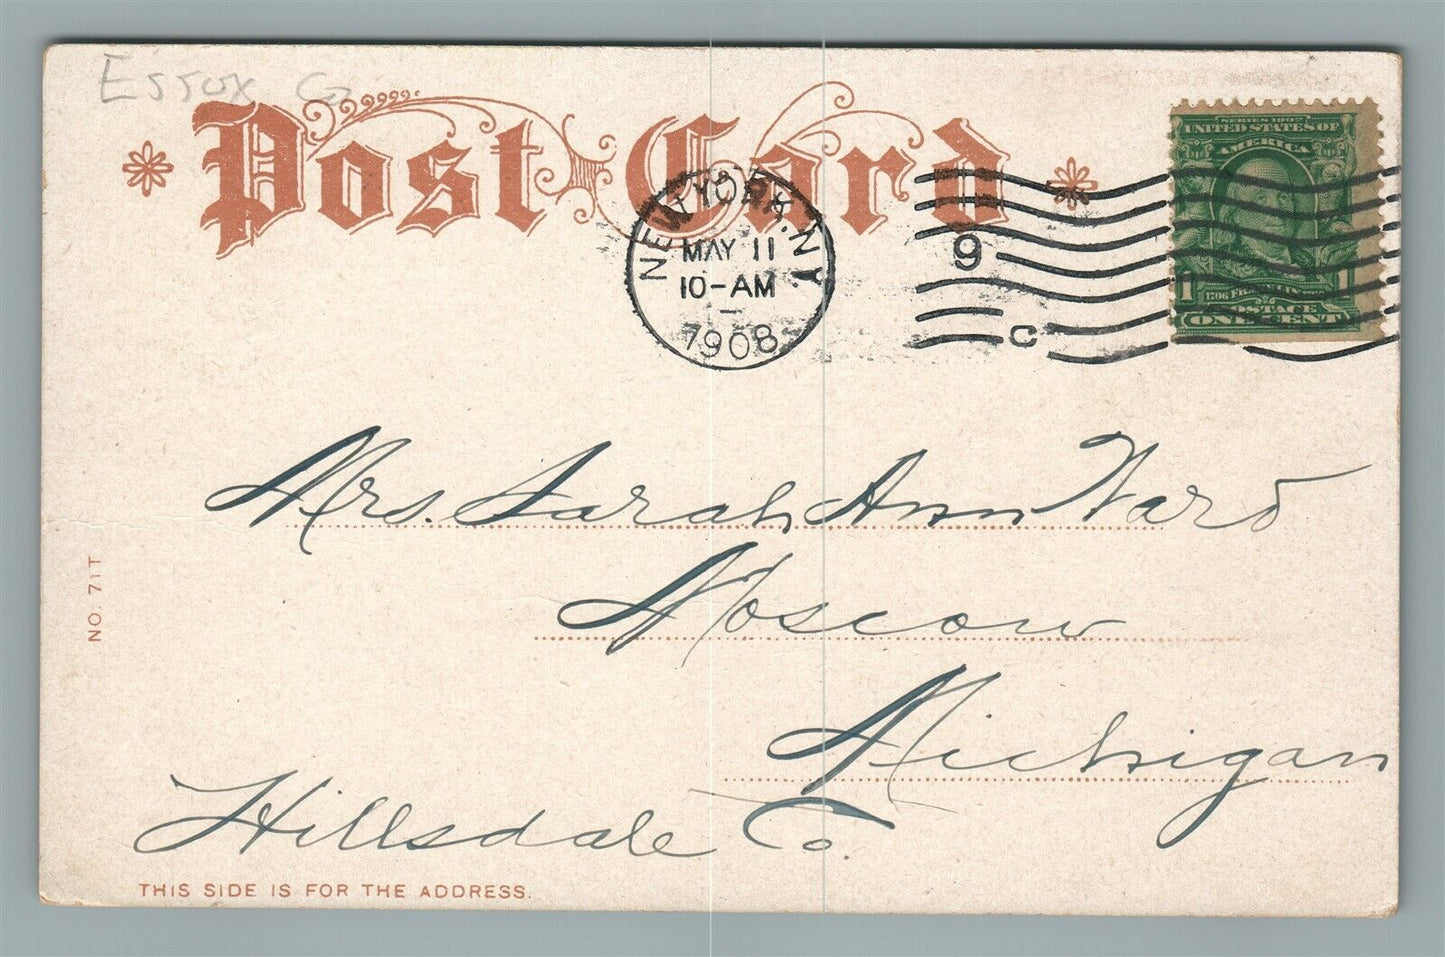 Essex Co
Post Card
NEW YORK, N.Y.
MAY 11
10-AM
1908
9
C
SERIES 1902
UNITED STATES OF
AMERICA
1 1706 FRANKLIN 1790 1
POSTAGE
ONE CENT
Mrs. Sarah Ann Ward
Moscow
Michigan
Hillsdale Co.
NO. 71T
THIS SIDE IS FOR THE ADDRESS.